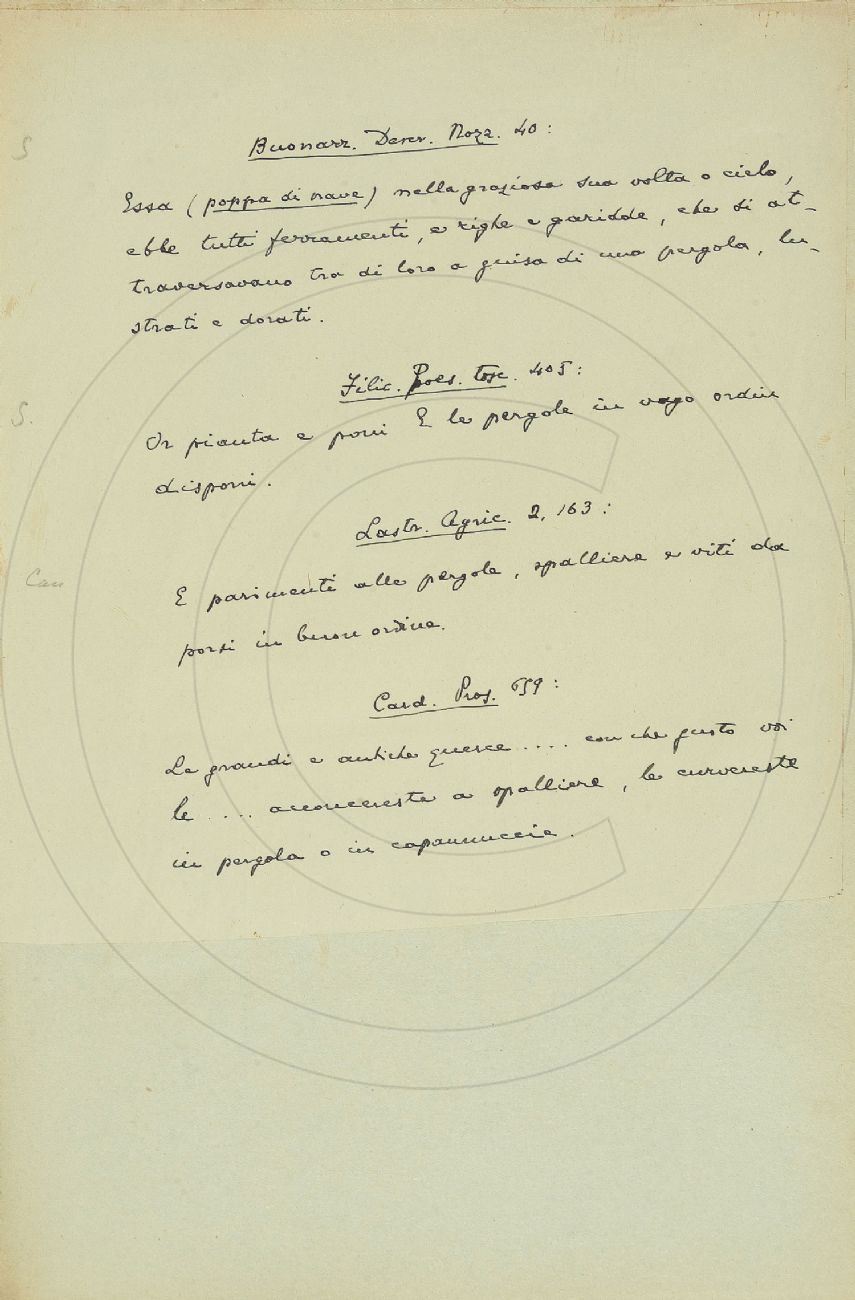 S
Buonarr. Descr. Nozz. 40:
Essa (poppa di nave) nella graziosa sua volta o cielo,
ebbe tutti ferramenti, e righe e garidde, che si at-
traversavano tra di loro a guisa di una pergola, lu-
strati e dorati.
Filic. Poes. tosc. 405:
S.
Or pianta e poni E le pergole in vago ordin
disponi.
Lastr. Agric. 2, 163:
Can
E parimenti alle pergole, spalliere e viti da
porsi in buon ordine.
Card. Pros. 659:
Le grandi e antiche querce .... con che gusto voi
le .... acconcereste a spalliere, le curvereste
in pergola o in capannuccie.